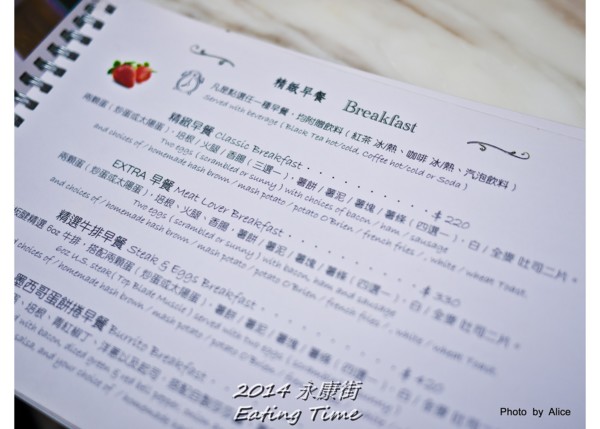 精緻早餐 Breakfast
凡是點選任一種早餐，均附贈飲料 ( 紅茶 冰/熱、咖啡 冰/熱、汽泡飲料 )
Served with beverage ( Black Tea hot/cold, Coffee hot/cold or Soda )
精緻早餐 Classic Breakfast $ 220
兩顆蛋 ( 炒蛋或太陽蛋 )，培根 / 火腿 / 香腸 ( 三選一 )，薯餅 / 薯泥 / 薯塊 / 薯條 ( 四選一 )，白 / 全麥 吐司二片。
Two eggs ( scrambled or sunny ) with choices of bacon / ham / sausage
and choices of / homemade hash brown / mash potato / potato O'Brien / french fries / , white / wheat Toast.
EXTRA 早餐 Meat Lover Breakfast $ 330
兩顆蛋 ( 炒蛋或太陽蛋 )，培根、火腿、香腸，薯餅 / 薯泥 / 薯塊 / 薯條 ( 四選一 )，白 / 全麥 吐司二片。
Two eggs ( scrambled or sunny ) with bacon, ham and sausage
and choices of / homemade hash brown / mash potato / potato O'Brien / french fries / , white / wheat Toast.
精選牛排早餐 Steak & Eggs Breakfast $ 420
精選 6oz 牛排，搭配兩顆蛋 ( 炒蛋或太陽蛋 )，薯餅 / 薯泥 / 薯塊 / 薯條 ( 四選一 )，白 / 全麥
6oz U.S. steak ( Top Blade Muscle ) served with two eggs ( scrambled or sunny )
choices of / homemade hash brown / mash potato / potato O'Brien / french
墨西哥蛋餅捲早餐 Burrito Breakfast
培根、青紅椒丁、洋蔥以及起司，搭配
with bacon, diced green & red bell
salsa, and your choice of / home
2014 永康街
Eating Time
Photo by Alice